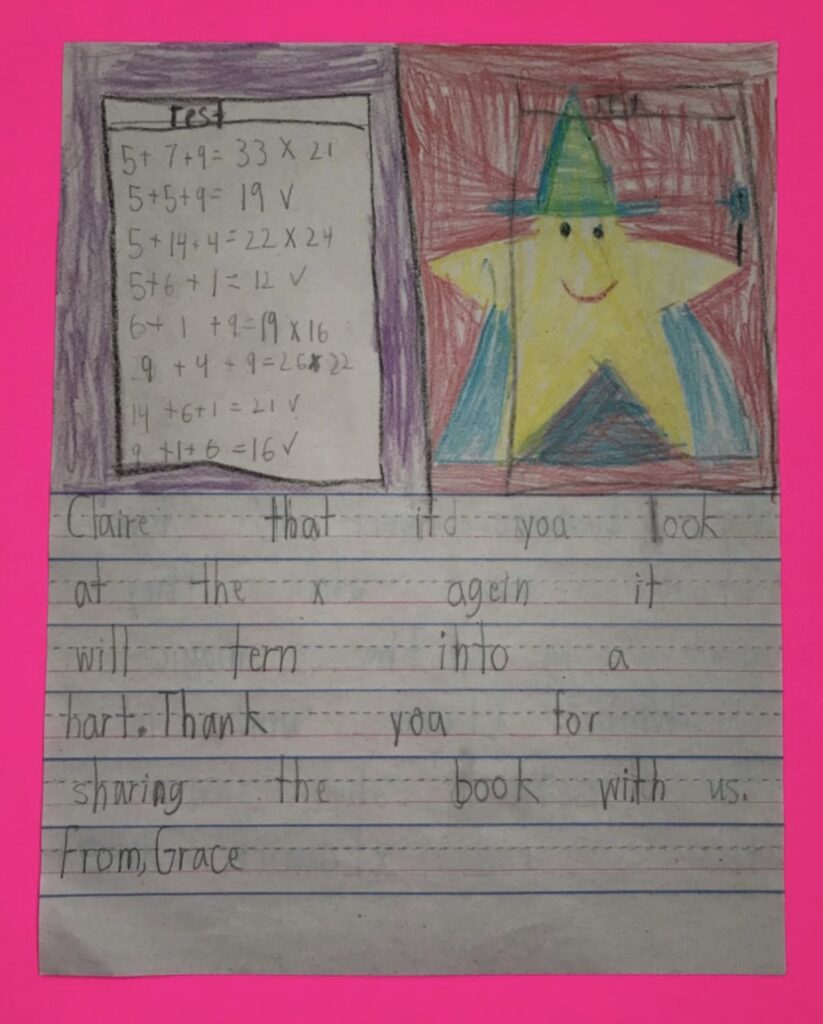 test
5 + 7 + 9 = 33 x 21
5 + 5 + 9 = 19 ✓
5 + 14 + 4 = 22 x 24
5 + 6 + 1 = 12 ✓
6 + 1 + 9 = 19 x 16
9 + 4 + 9 = 26 x 22
14 + 6 + 1 = 21 ✓
9 + 1 + 6 = 16 ✓
Claire that you look
at the x agein it
will tern into a
hart. Thank you for
sharing the book with us.
From, Grace